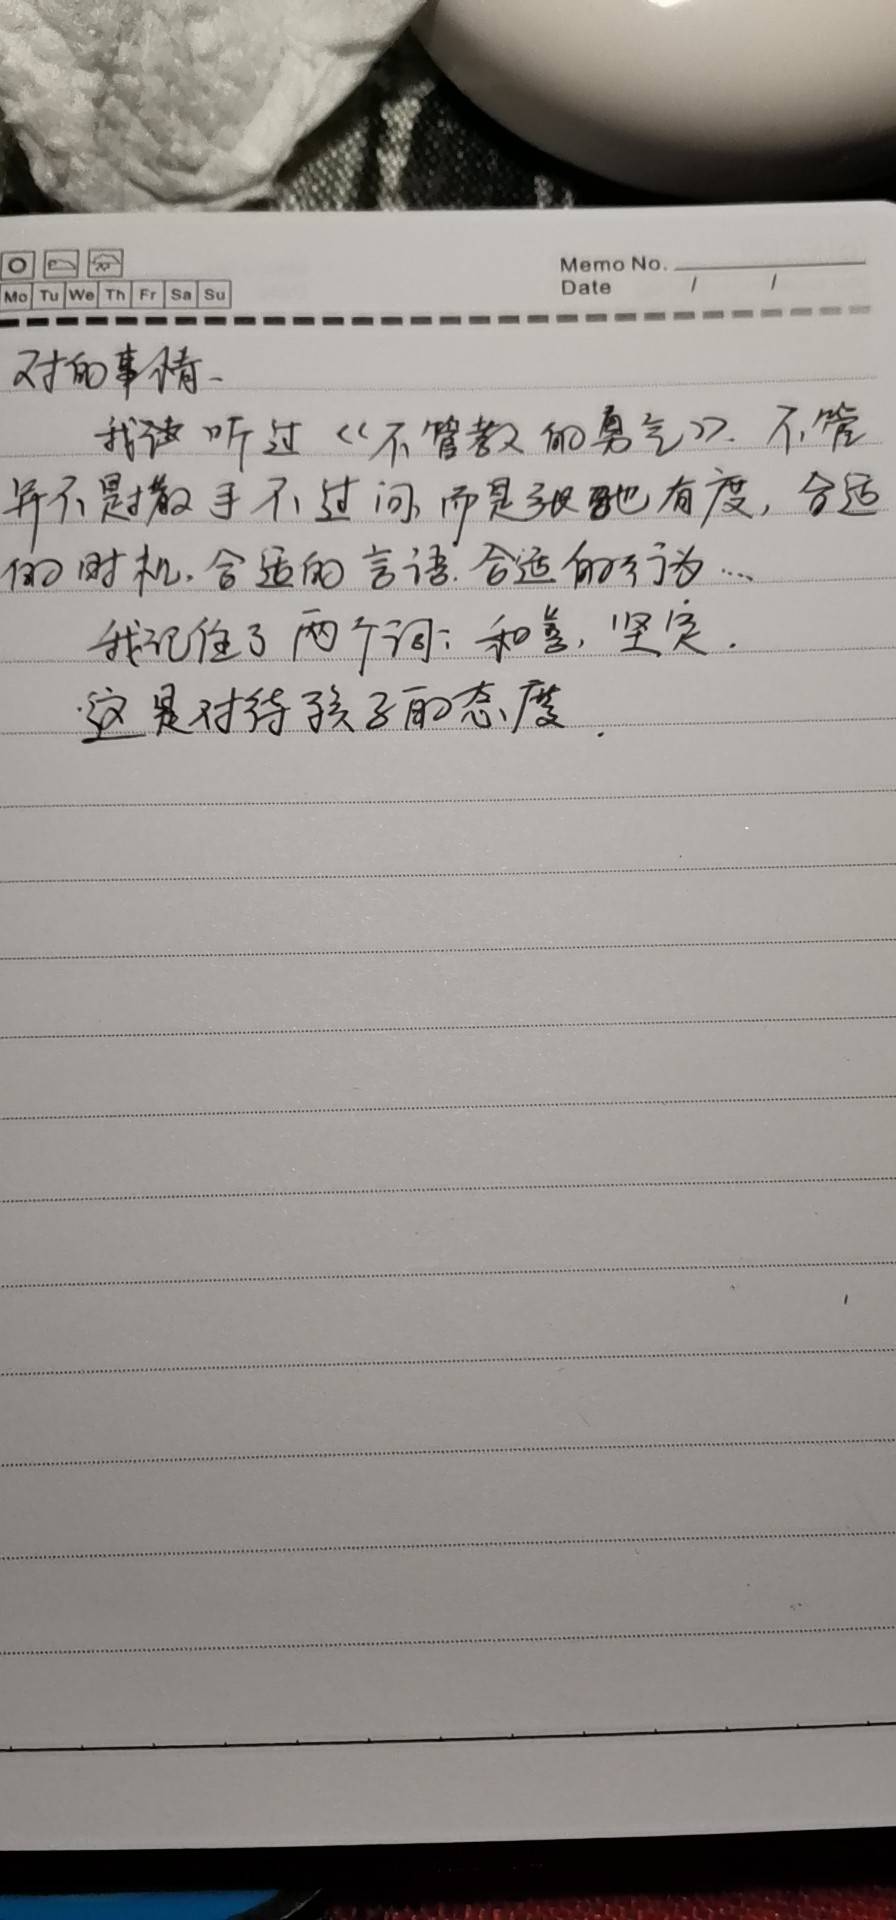 Memo No.
Mo Tu We Th Fr Sa Su
Date / /
对的事情.
我读听过《不管教的勇气》. 不管
并不是撒手不过问, 而是张弛有度, 合适
的时机, 合适的言语, 合适的行为...
我记住了两个词: 和善, 坚定.
这是对待孩子的态度.